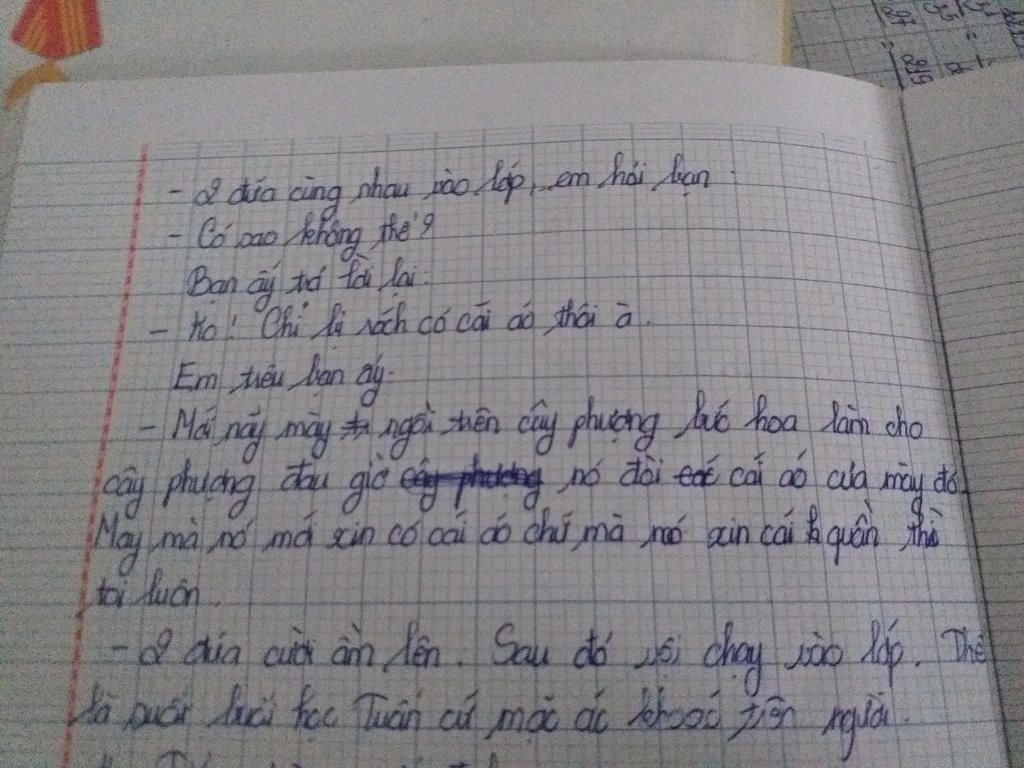 - 2 đứa cùng nhau vào lớp, em hỏi bạn.
- Có sao không thế?
Bạn ấy trả lời lại:
- Ko! Chỉ bị rách có cái áo thôi à.
Em trêu bạn ấy:
- Mới nãy mày ngồi trên cây phượng bứt hoa làm cho
cây phượng đau giờ cây phượng nó đòi cái áo của mày đó.
May mà nó mới xin có cái áo chứ mà nó xin cái quần thì
tôi luôn.
- 2 đứa cười ầm lên. Sau đó vội chạy vào lớp. Thế
là suốt buổi học Tuấn cứ mặc áo khoác trên người.